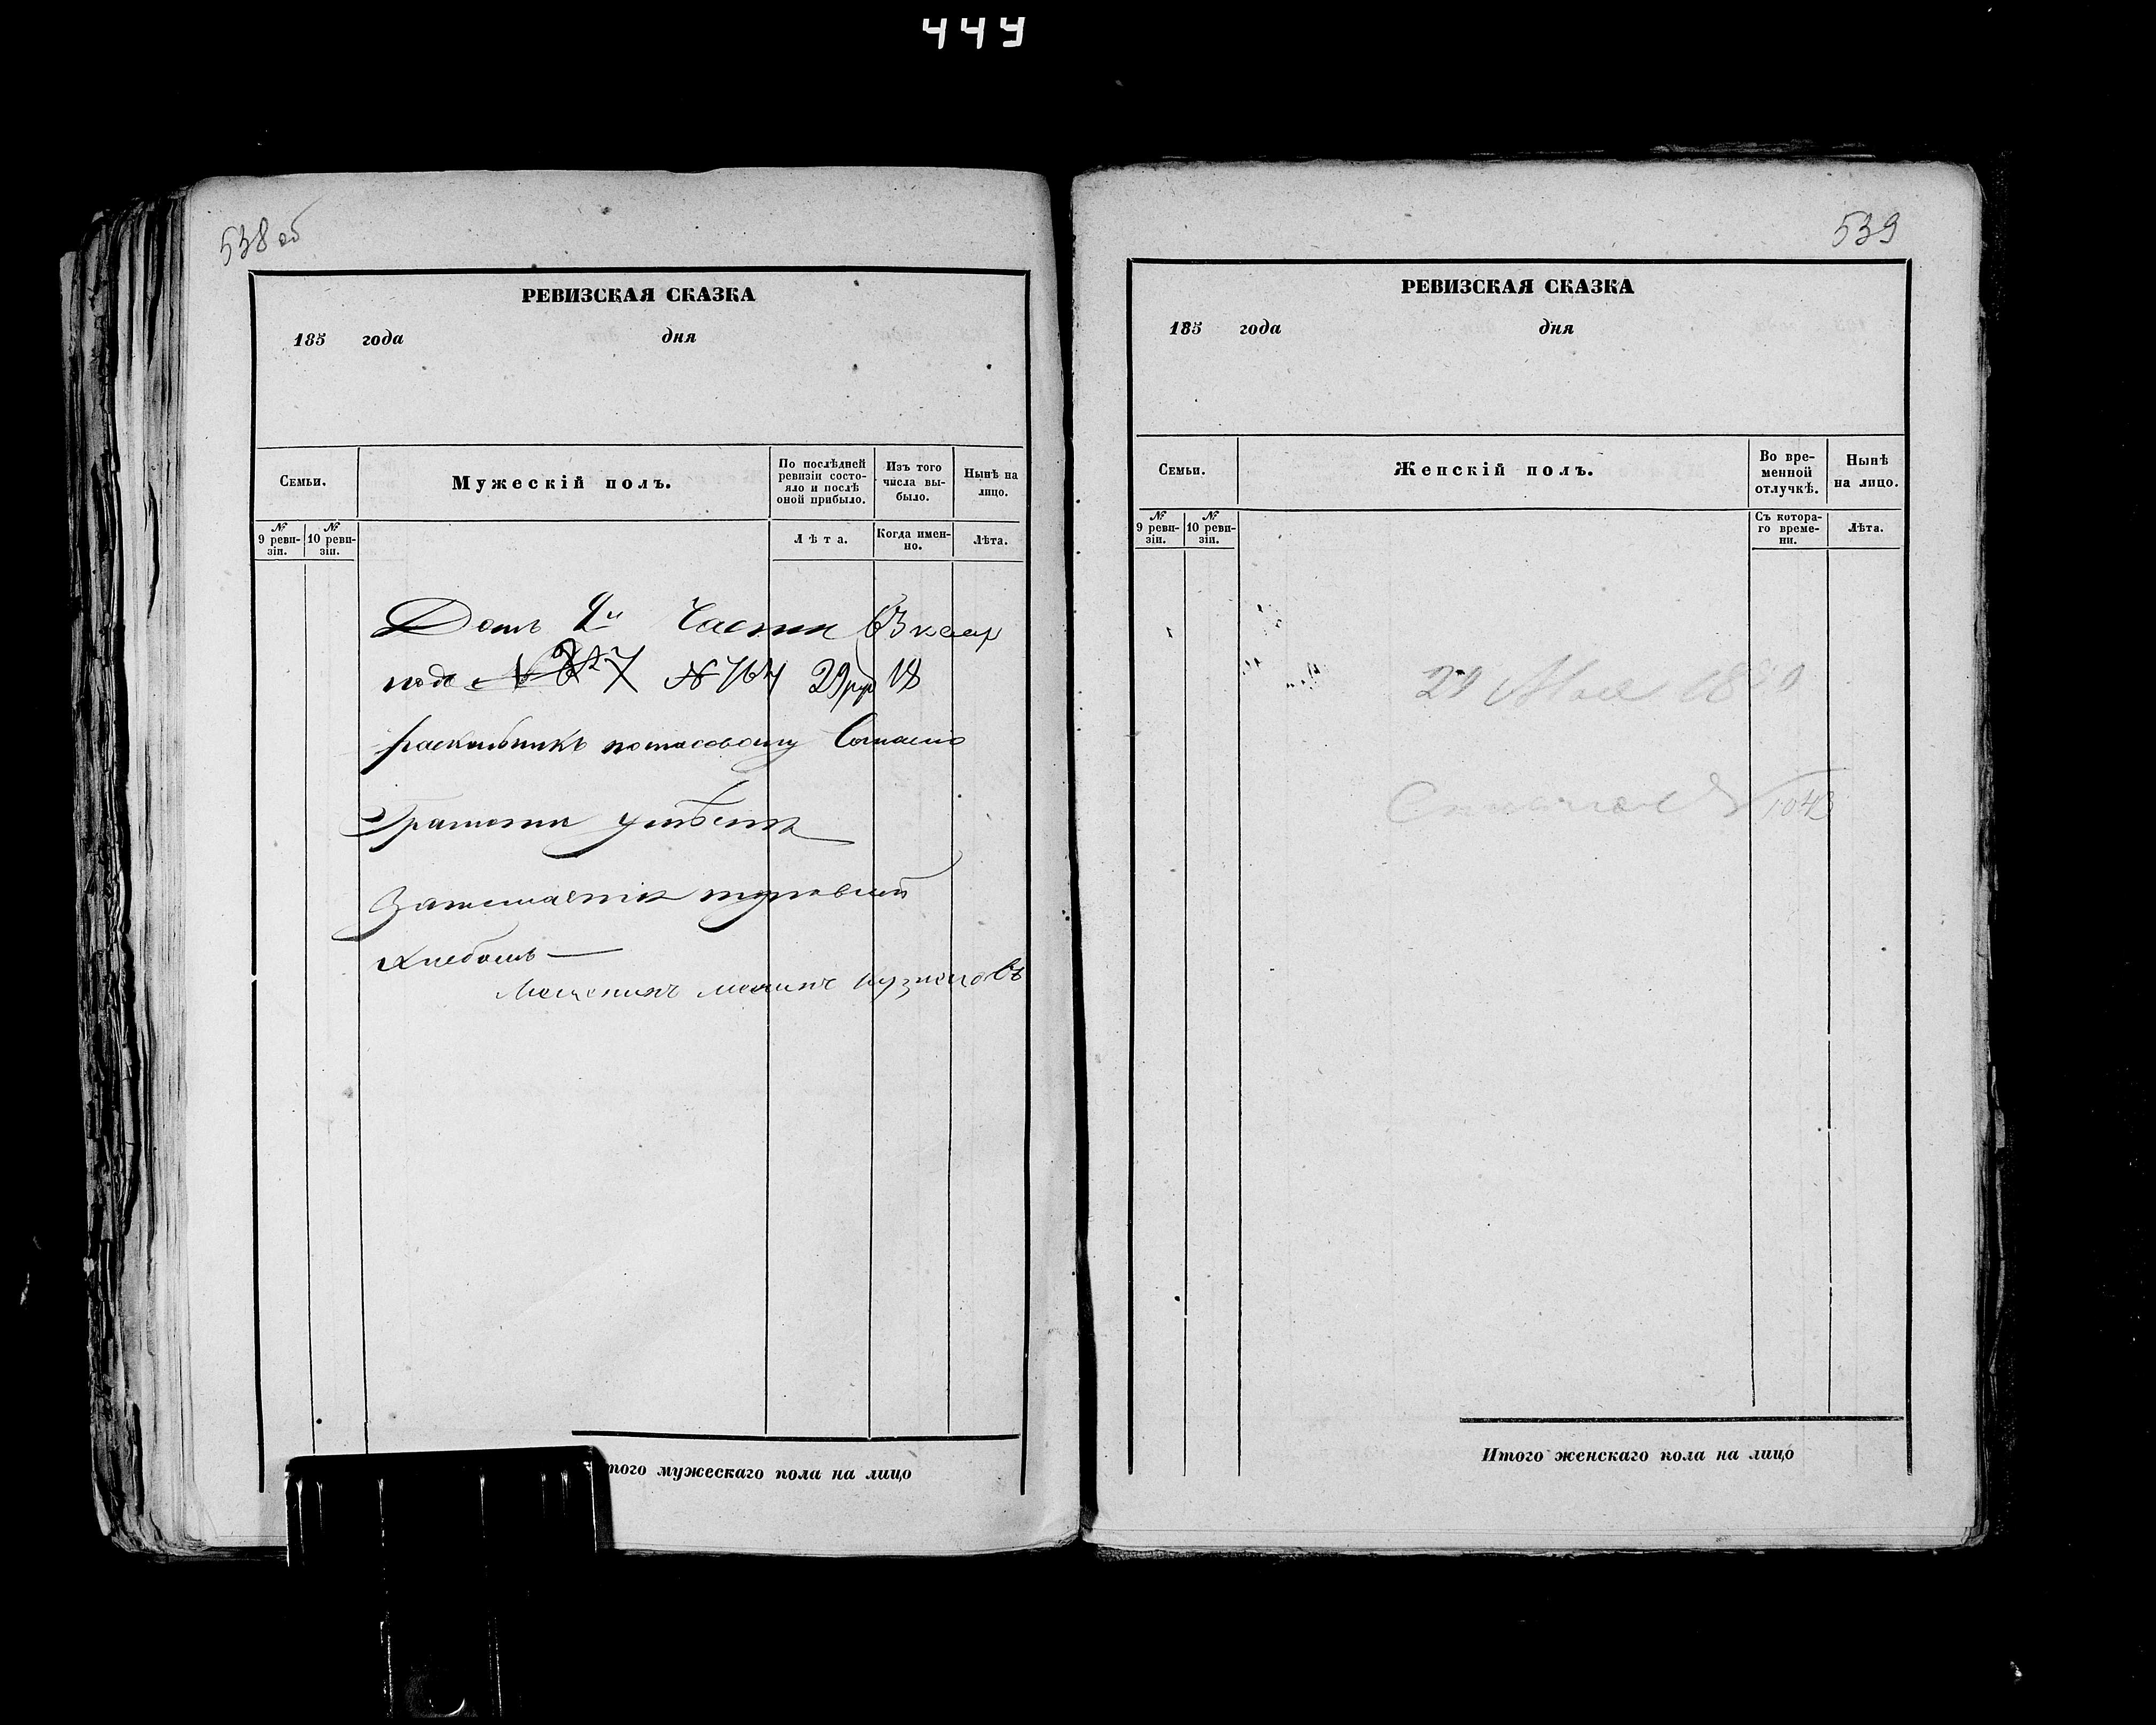 449
538 об
РЕВИЗСКАЯ СКАЗКА
185 года дня
Семьи.
Мужескій полъ.
По послѣдней ревизіи состояло и послѣ оной прибыло.
Изъ того числа выбыло.
Нынѣ на лицо.
№ 9 ревизіи.
№ 10 ревизіи.
Лѣта.
Когда именно.
Лѣта.
Домъ 2й Части 63 квар
подъ № 764
раскольникъ
Грамоти умѣетъ
Занимается торговлей
хлебомъ —
Мещенинъ Кузнецовъ
того мужескаго пола на лицо
539
РЕВИЗСКАЯ СКАЗКА
185 года дня
Семьи.
Женскій полъ.
Во временной отлучкѣ.
Нынѣ на лицо.
№ 9 ревизіи.
№ 10 ревизіи.
Съ котораго времени.
Лѣта.
29 Мая
Итого женскаго пола на лицо